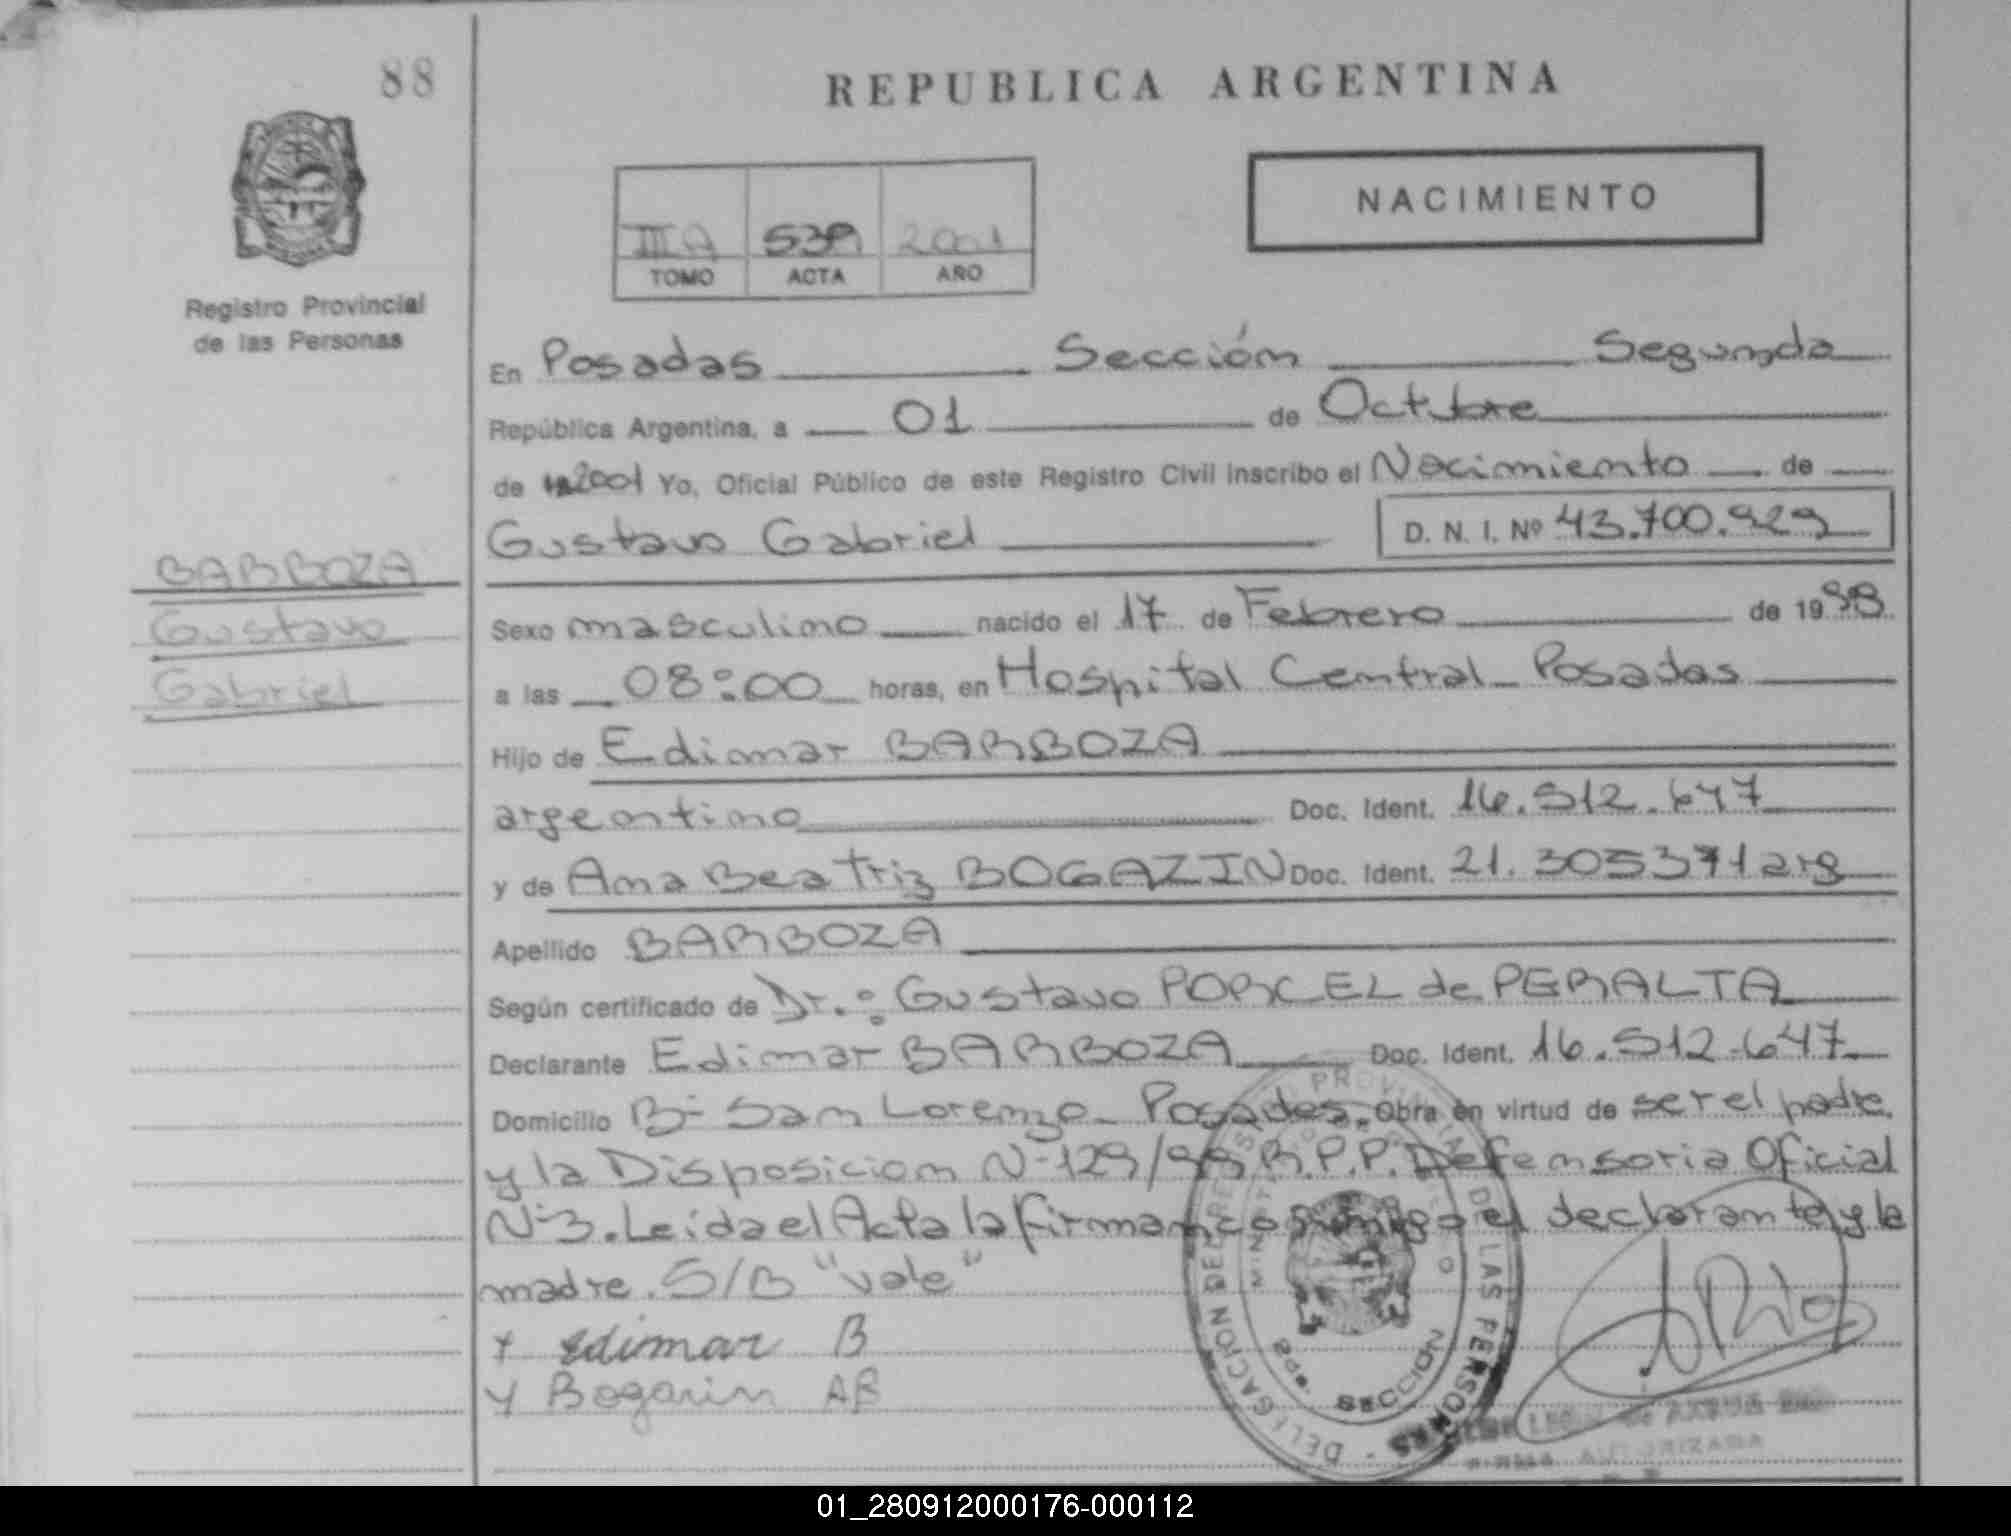 88
REPUBLICA ARGENTINA
NACIMIENTO
III A 539 2001
TOMO ACTA AÑO
Registro Provincial
de las Personas
En Posadas Sección Segunda
República Argentina, a 01 de Octubre
de 2001 Yo, Oficial Público de este Registro Civil inscribo el Nacimiento de
Gustavo Gabriel D. N. I. Nº 43.700.929
BARBOZA
Gustavo
Gabriel
Sexo masculino nacido el 17 de Febrero de 1998
a las 08:00 horas, en Hospital Central - Posadas
Hijo de Edimar BARBOZA
argentino Doc. Ident. 16.512.647
y de Ana Beatriz BOGAZIN Doc. Ident. 21.305371 arg
Apellido BARBOZA
Según certificado de Dr.: Gustavo PORCEL de PERALTA
Declarante Edimar BARBOZA Doc. Ident. 16.512.647
Domicilio Bº San Lorenzo - Posadas. Obra en virtud de ser el padre
y la Disposicion Nº 129/99 R.P.P. Defensoria Oficial
Nº 3. Leida el Acta la firman conmigo el declarante y la
madre. S/B "vale"
Edimar B
Bogarin AB
DELEGACION DEL REGISTRO PROVINCIAL DE LAS PERSONAS
2da. SECCION
FIRMA AUTORIZADA
01_280912000176-000112